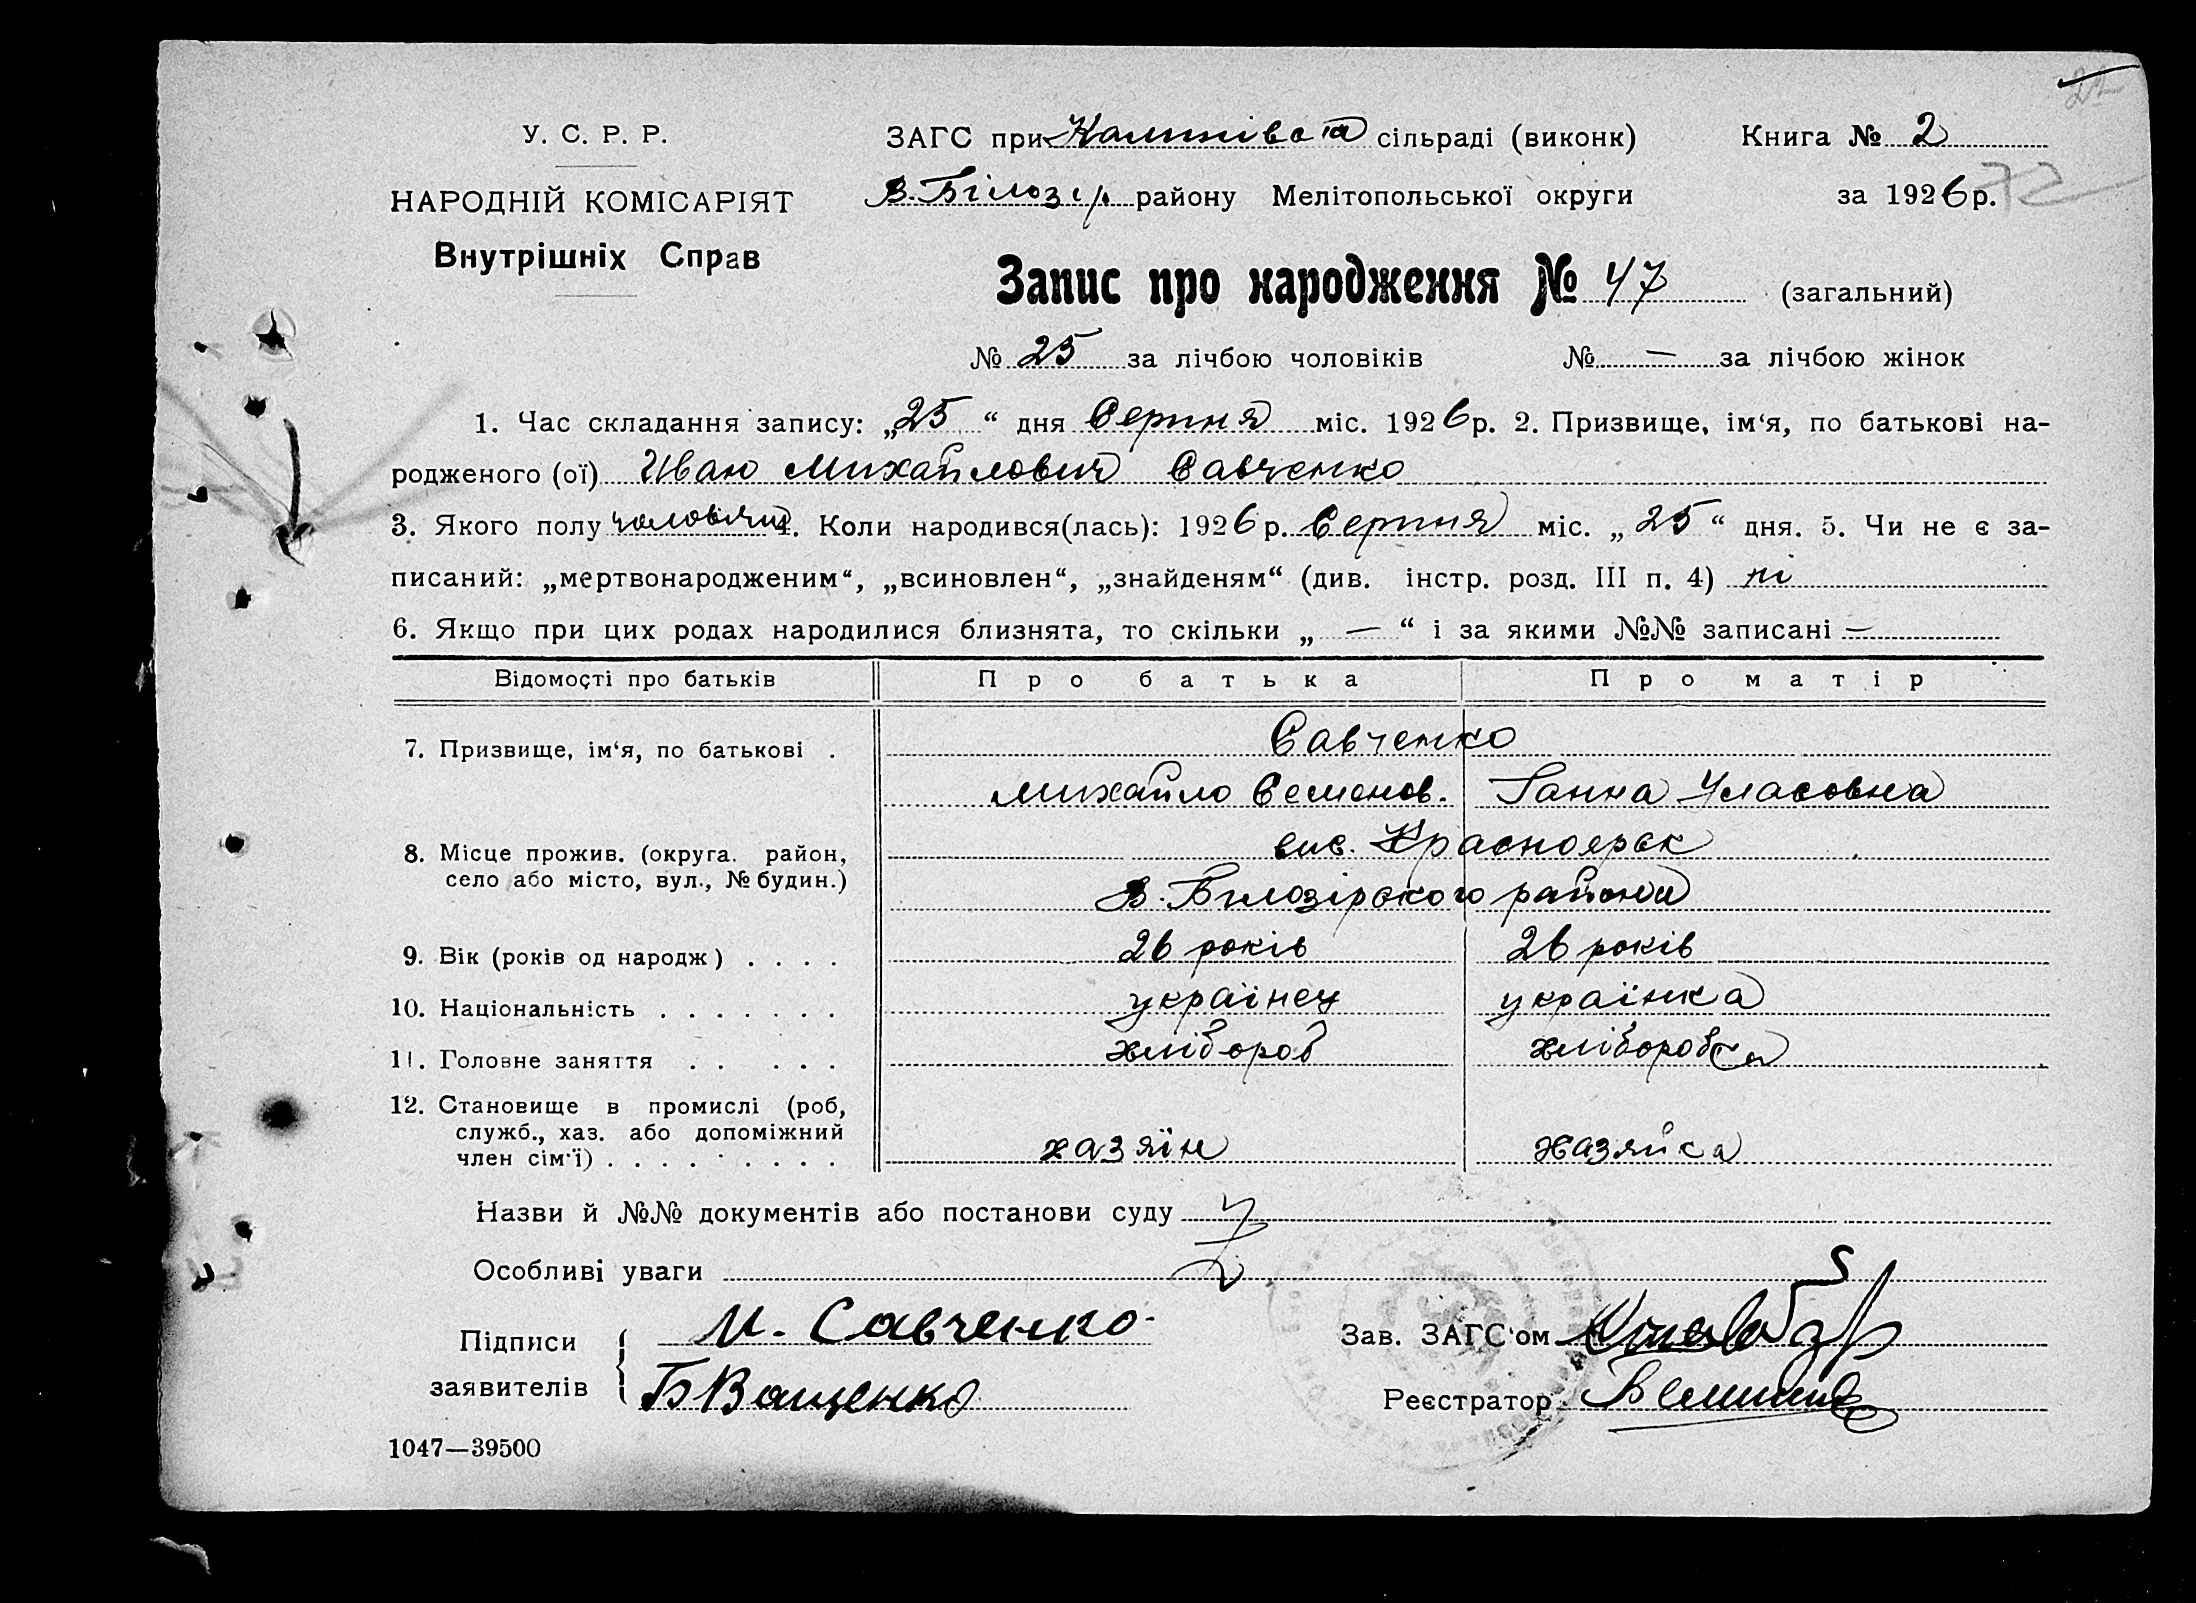 У. С. Р. Р.
НАРОДНІЙ КОМІСАРІЯТ
Внутрішніх Справ
ЗАГС при сільраді (виконк) Книга № 2
В. Білозір. району Мелітопольської округи за 1926 р. 72
Запис про народження № 47 (загальний)
№ 25 за лічбою чоловіків № — за лічбою жінок
1. Час складання запису: „25“ дня Серпня міс. 1926 р. 2. Призвище, ім‘я, по батькові на-
родженого (ої) Иван Михайлович Савченко
3. Якого полу чоловічий 4. Коли народився(лась): 1926 р. Серпня міс. „25“ дня. 5. Чи не є за-
писаний: „мертвонародженим“, „всиновлен“, „знайденям“ (див. інстр. розд. III п. 4) ні
6. Якщо при цих родах народилися близнята, то скільки „ — “ і за якими №№ записані —
Відомості про батьків Про батька Про матір
7. Призвище, ім‘я, по батькові . Савченко
Михайло Семенов. Ганна Уласовна
8. Місце прожив. (округа, район, село або місто, вул., № будин.) вис. Красноярск
В. Білозірского района
9. Вік (років од народж) . . . . 26 років 26 років
10. Національність . . . . . . . українец українка
11. Головне заняття . . . . . хлібороб хліборобка
12. Становище в промислі (роб,
служб., хаз. або допоміжний
член сім‘ї) . . . . . . . . . хазяїн хазяйка
Назви й №№ документів або постанови суду
Особливі уваги
Підписи заявителів { М. Савченко.
Б Ващенко
Зав. ЗАГС‘ом
Реєстратор
1047—39500